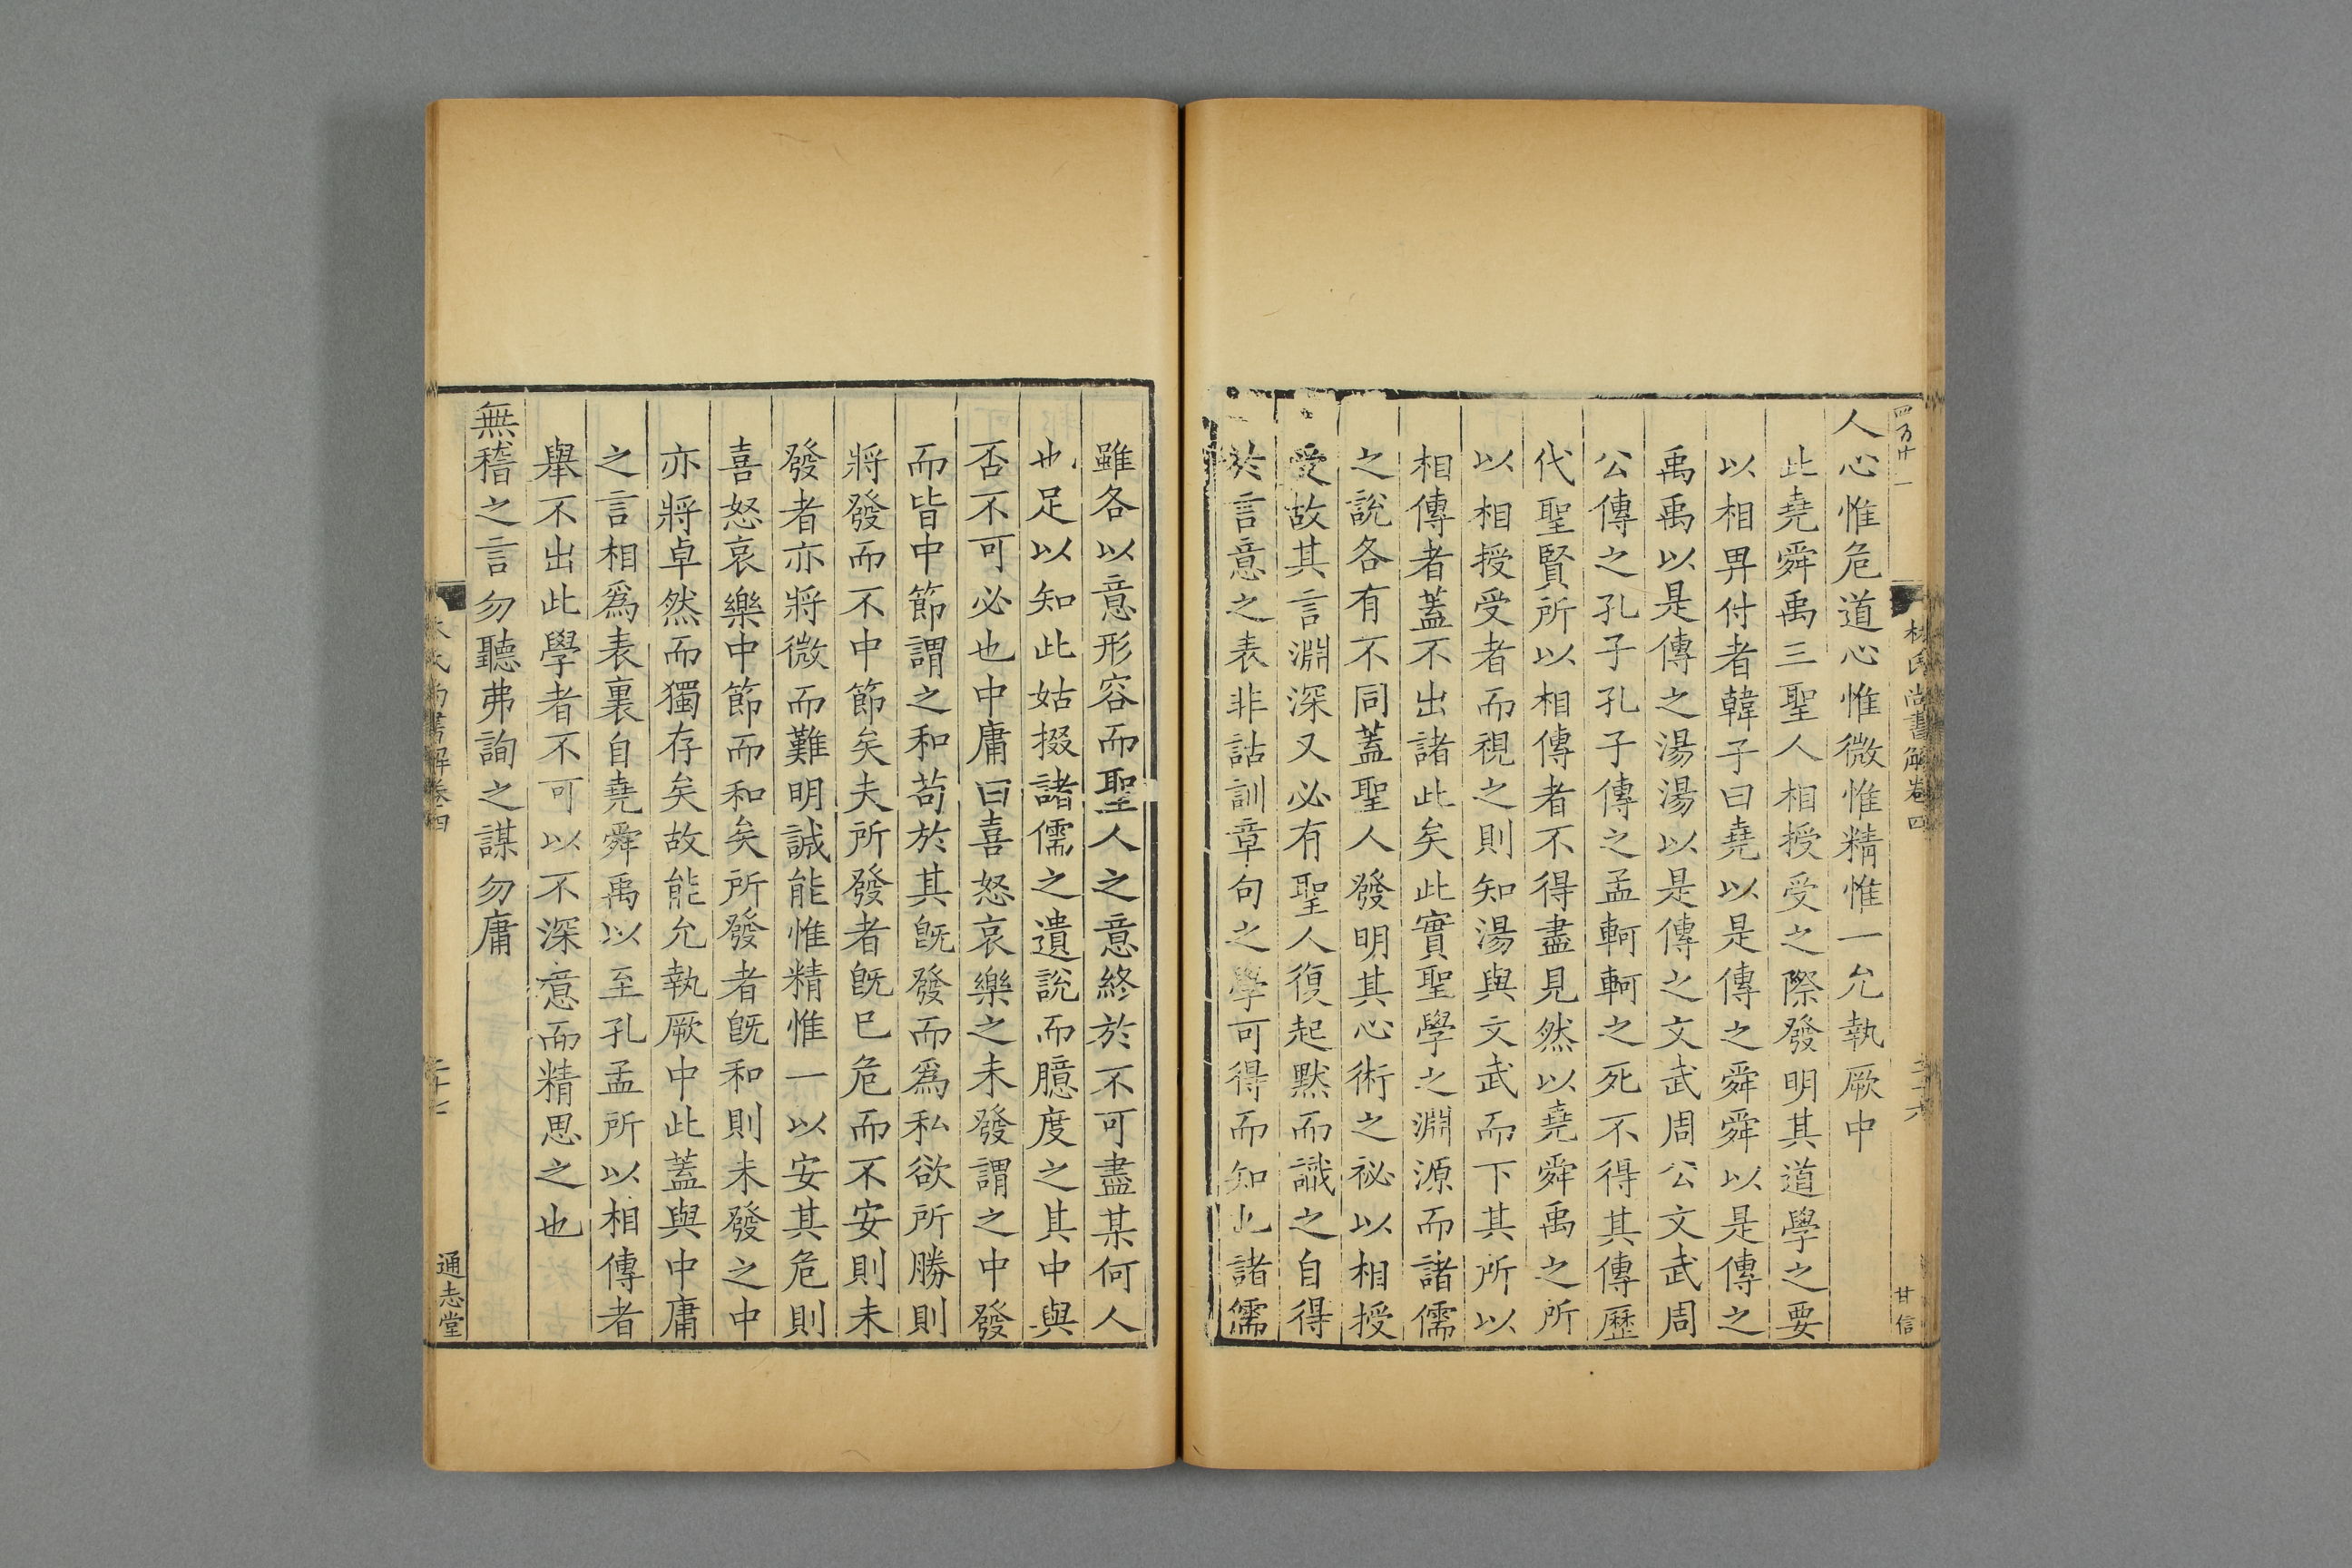 人心惟危道心惟微惟精惟一允執厥中
此堯舜禹三聖人相授受之際發明其道學之要
以相畀付者韓子曰堯以是傳之舜舜以是傳之
禹禹以是傳之湯湯以是傳之文武周公文武周
公傳之孔子孔子傳之孟軻軻之死不得其傳歷
代聖賢所以相傳者不得盡見然以堯舜禹之所
以相授受者而視之則知湯與文武而下其所以
相傳者蓋不出諸此矣此實聖學之淵源而諸儒
之說各有不同蓋聖人發明其心術之祕以相授
受故其言淵深又必有聖人復起默而識之自得
於言意之表非詁訓章句之學可得而知也諸儒
林氏尚書解卷四
甘信
雖各以意形容而聖人之意終於不可盡某何人
也足以知此姑掇諸儒之遺說而臆度之其中與
否不可必也中庸曰喜怒哀樂之未發謂之中發
而皆中節謂之和苟於其旣發而爲私欲所勝則
將發而不中節矣夫所發者旣已危而不安則未
發者亦將微而難明誠能惟精惟一以安其危則
喜怒哀樂中節而和矣所發者旣和則未發之中
亦將卓然而獨存矣故能允執厥中此蓋與中庸
之言相爲表裏自堯舜禹以至孔孟所以相傳者
舉不出此學者不可以不深意而精思之也
無稽之言勿聽弗詢之謀勿庸
氏尚書解卷四
通志堂